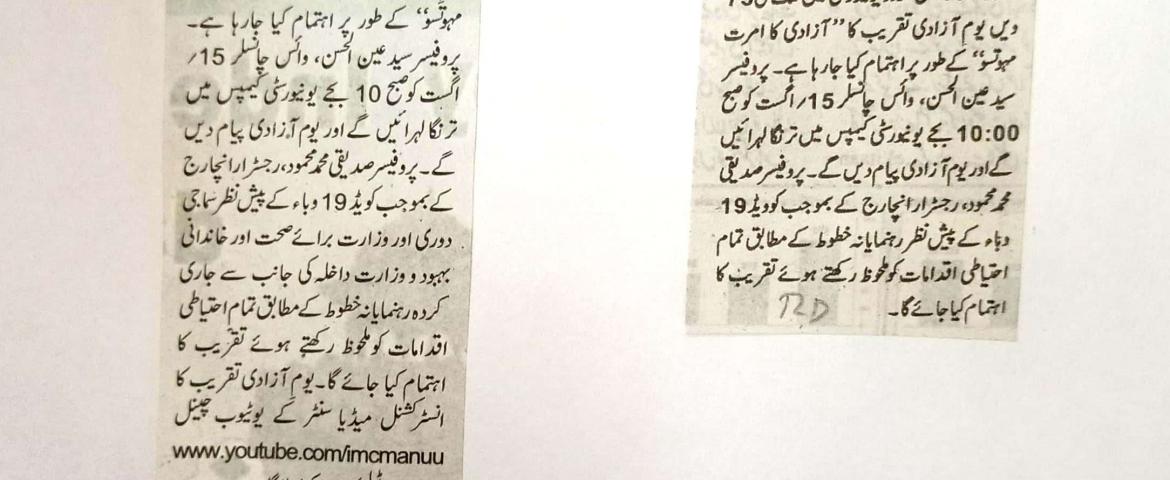 مہوتسو‘‘ کے طور پر اہتمام کیا جارہا ہے۔
پروفیسر سید عین الحسن، وائس چانسلر 15؍
اگست کو صبح 10 بجے یونیورسٹی کیمپس میں
ترنگا لہرائیں گے اور یوم آزادی پیام دیں
گے۔ پروفیسر صدیقی محمد محمود، رجسٹرار انچارج
کے بموجب کویڈ 19 وباء کے پیش نظر سماجی
دوری اور وزارت برائے صحت اور خاندانی
بہبود و وزارت داخلہ کی جانب سے جاری
کردہ رہنمایانہ خطوط کے مطابق تمام احتیاطی
اقدامات کو ملحوظ رکھتے ہوئے تقریب کا
اہتمام کیا جائے گا۔ یوم آزادی تقریب کا
انسٹرکشنل میڈیا سنٹر کے یوٹیوب چینل
www.youtube.com/imcmanuu
ویں یوم آزادی تقریب کا ’’آزادی کا امرت
مہوتسو‘‘ کے طور پر اہتمام کیا جارہا ہے۔ پروفیسر
سید عین الحسن، وائس چانسلر 15؍اگست کو صبح
10:00 بجے یونیورسٹی کیمپس میں ترنگا لہرائیں
گے اور یوم آزادی پیام دیں گے۔ پروفیسر صدیقی
محمد محمود، رجسٹرار انچارج کے بموجب کوویڈ 19
وباء کے پیش نظر رہنمایانہ خطوط کے مطابق تمام
احتیاطی اقدامات کو ملحوظ رکھتے ہوئے تقریب کا
اہتمام کیا جائے گا۔